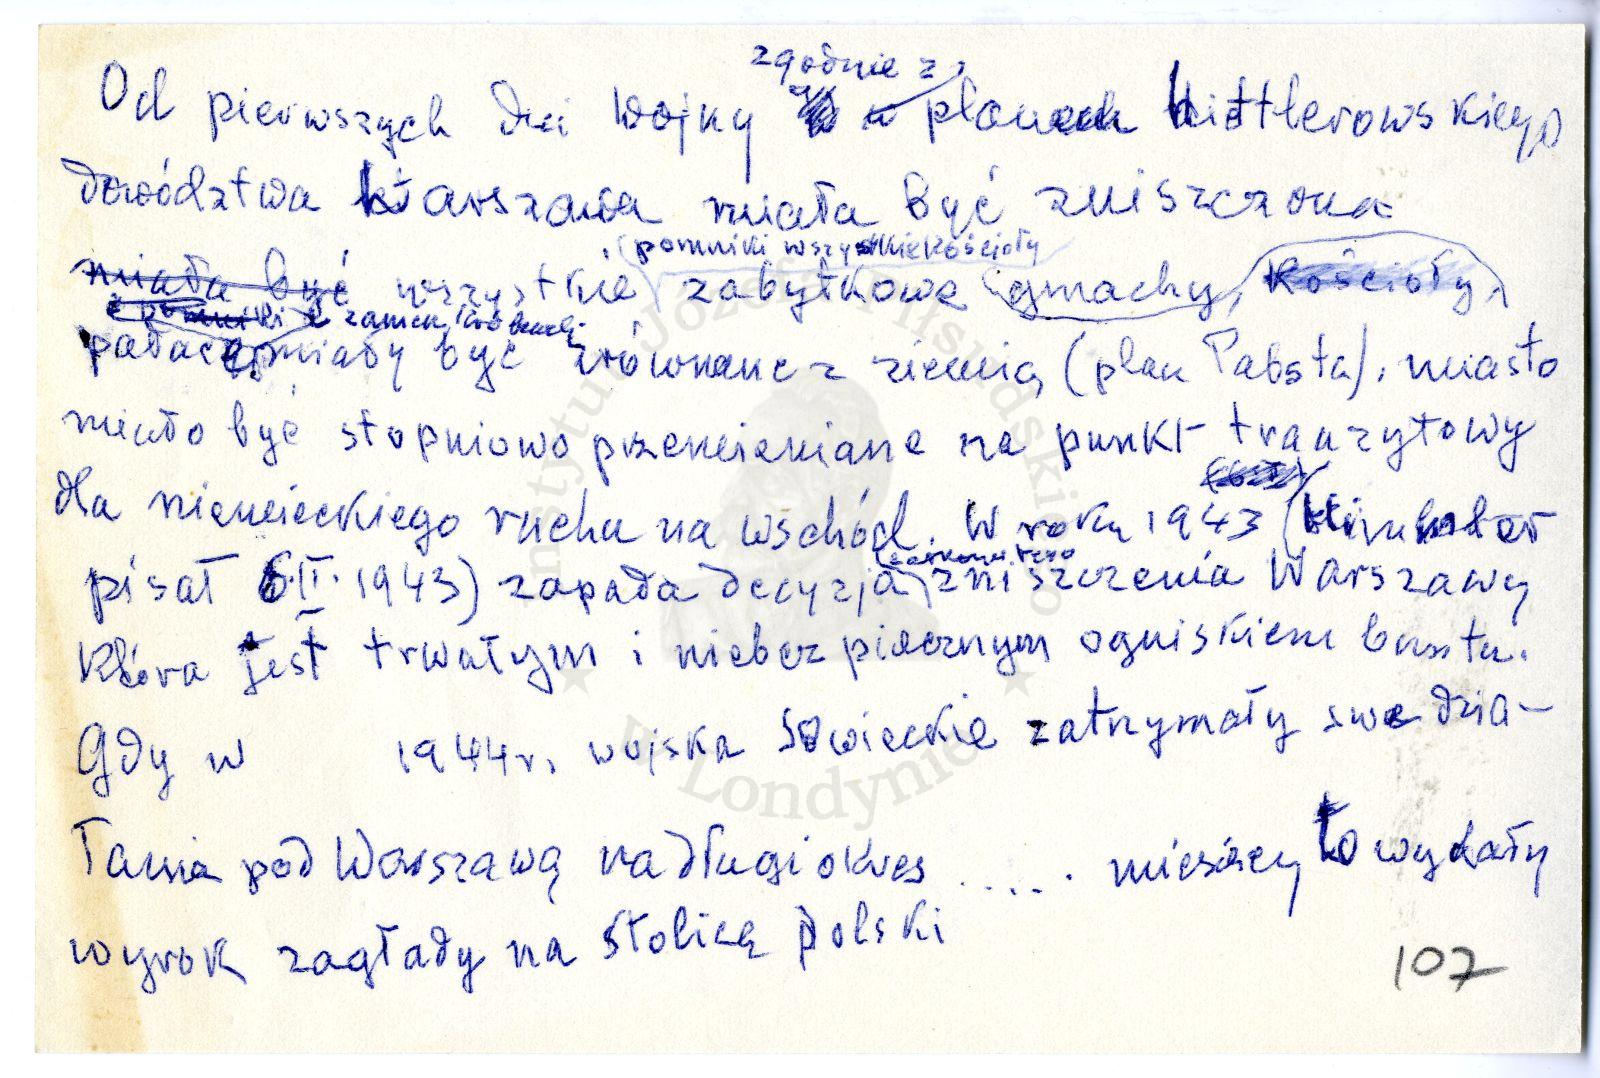 zgodnie z
Od pierwszych dni Wojny w planach Hittlerowskiego
dowództwa Warszawa miała być zniszczona
pomniki wszystkie Kościoły
miała być wszystkie zabytkowe gmachy, Kościoły,
i pomniki i zamek
pałace miały być zrównane z ziemią (plan Pabsta), miasto
miało być stopniowo przemieniane na punkt tranzytowy
dla niemieckiego ruchu na wschód. W roku 1943 (Himmler
całkowitego
pisał 6.II.1943) zapada decyzja zniszczenia Warszawy
która jest trwałym i niebezpiecznym ogniskiem buntu.
Gdy w 1944r. wojska Sowieckie zatrzymały swe dzia-
łania pod Warszawą na długi okres ..... miesięcy to wydały
wyrok zagłady na Stolicę Polski
107
Instytut Józefa Piłsudskiego
w Londynie